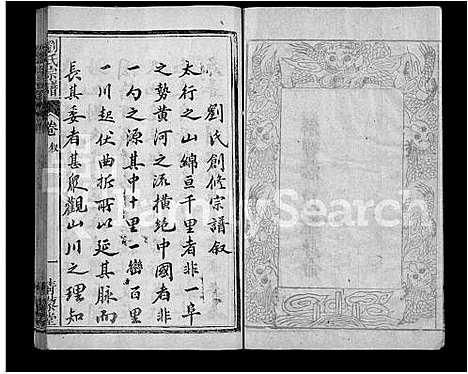 劉氏創修宗譜叙
太行之山綿亘千里者非一阜
之勢黄河之流横絶中國者非
一勺之源其中十里一巒百里
一川起伏曲折所以延其脉而
長其委者甚眾觀山川之理知
劉氏宗譜
卷 叙
一
FamilySearch